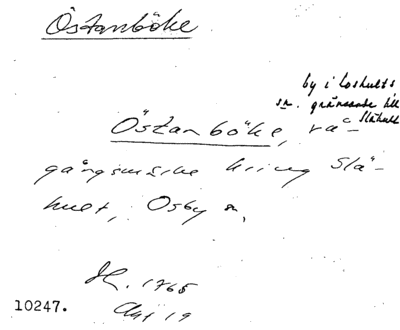 Östanböke
by i Loshults
sn. gränsande till
Slähult
Östanböke, rå-
gångsmärke kring Slä-
hult, Osby sn,
1765
19
10247.